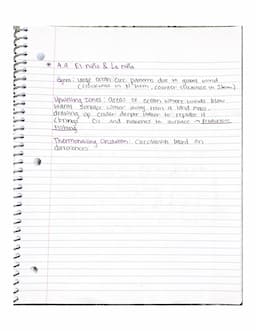 * 4.9 El niño & La niña
Gyres: large ocean circ patterns due to global wind
(clockwise in N hem, counter clockwise in S hem)
Upwelling zones: areas of ocean where winds blow
warm surface water away from a land mass,
drawing up colder deeper water to replace it
(brings O2 and nutrients to surface → productive
fishing
Thermohaline Circulation: circulation based on